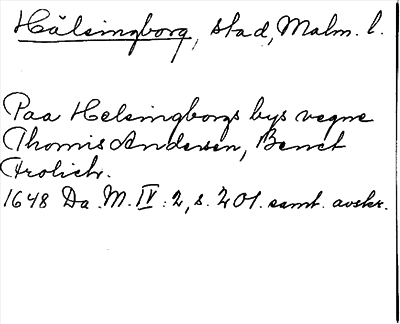 Hälsingborg, stad, Malm. l.
Paa Helsingborgs bys vegne
Thomis Andersen, Bennt
Frolich.
1648 Da. M. IV: 2, s. 201. samt. avskr.